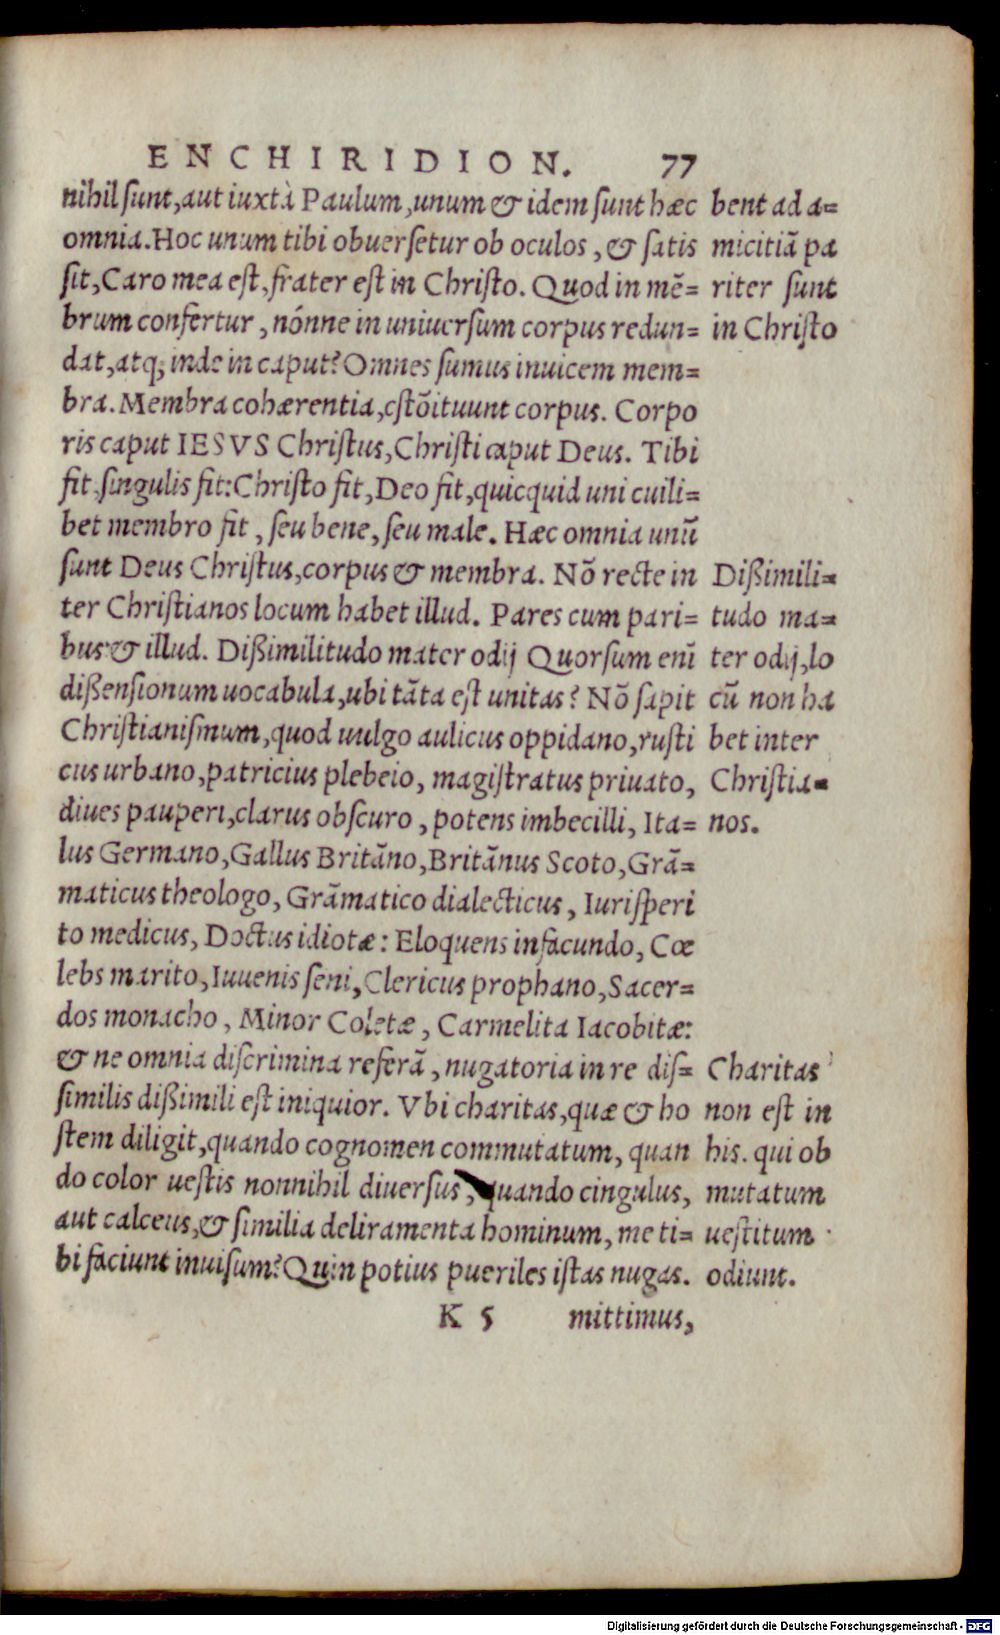 ENCHIRIDION. 77
nihil sunt, aut iuxtà Paulum, unum & idem sunt hæc
omnia. Hoc unum tibi obuersetur ob oculos, & satis
sit, Caro mea est, frater est in Christo. Quod in mē=
brum confertur, nónne in uniuersum corpus redun=
dat, atq; inde in caput? Omnes sumus inuicem mem=
bra. Membra cohærentia, cstōituunt corpus. Corpo
ris caput IESVS Christus, Christi caput Deus. Tibi
fit, singulis fit: Christo fit, Deo fit, quicquid uni cuili=
bet membro fit, seu bene, seu male. Hæc omnia unū
sunt Deus Christus, corpus & membra. Nō recte in
ter Christianos locum habet illud. Pares cum pari=
bus: & illud. Dißimilitudo mater odij Quorsum enī
dißensionum uocabula, ubi tāta est unitas? Nō sapit
Christianismum, quod uulgo aulicus oppidano, rusti
cus urbano, patricius plebeio, magistratus priuato,
diues pauperi, clarus obscuro, potens imbecilli, Ita=
lus Germano, Gallus Britāno, Britānus Scoto, Grā=
maticus theologo, Grāmatico dialecticus, Iurisperi
to medicus, Doctus idiotæ: Eloquens infacundo, Cœ
lebs marito, Iuuenis seni, Clericus prophano, Sacer=
dos monacho, Minor Coletæ, Carmelita Iacobitæ:
& ne omnia discrimina referā, nugatoria in re dis=
similis dißimili est iniquior. Vbi charitas, quæ & ho
stem diligit, quando cognomen commutatum, quan
do color uestis nonnihil diuersus, quando cingulus,
aut calceus, & similia deliramenta hominum, me ti=
bi faciunt inuisum? Quin potius pueriles istas nugas.
K 5 mittimus,
bent ad a=
micitiā pa
riter sunt
in Christo
Dißimili=
tudo ma=
ter odij, lo
cū non ha
bet inter
Christia=
nos.
Charitas
non est in
his. qui ob
mutatum
uestitum
odiunt.
Digitalisierung gefördert durch die Deutsche Forschungsgemeinschaft - DFG